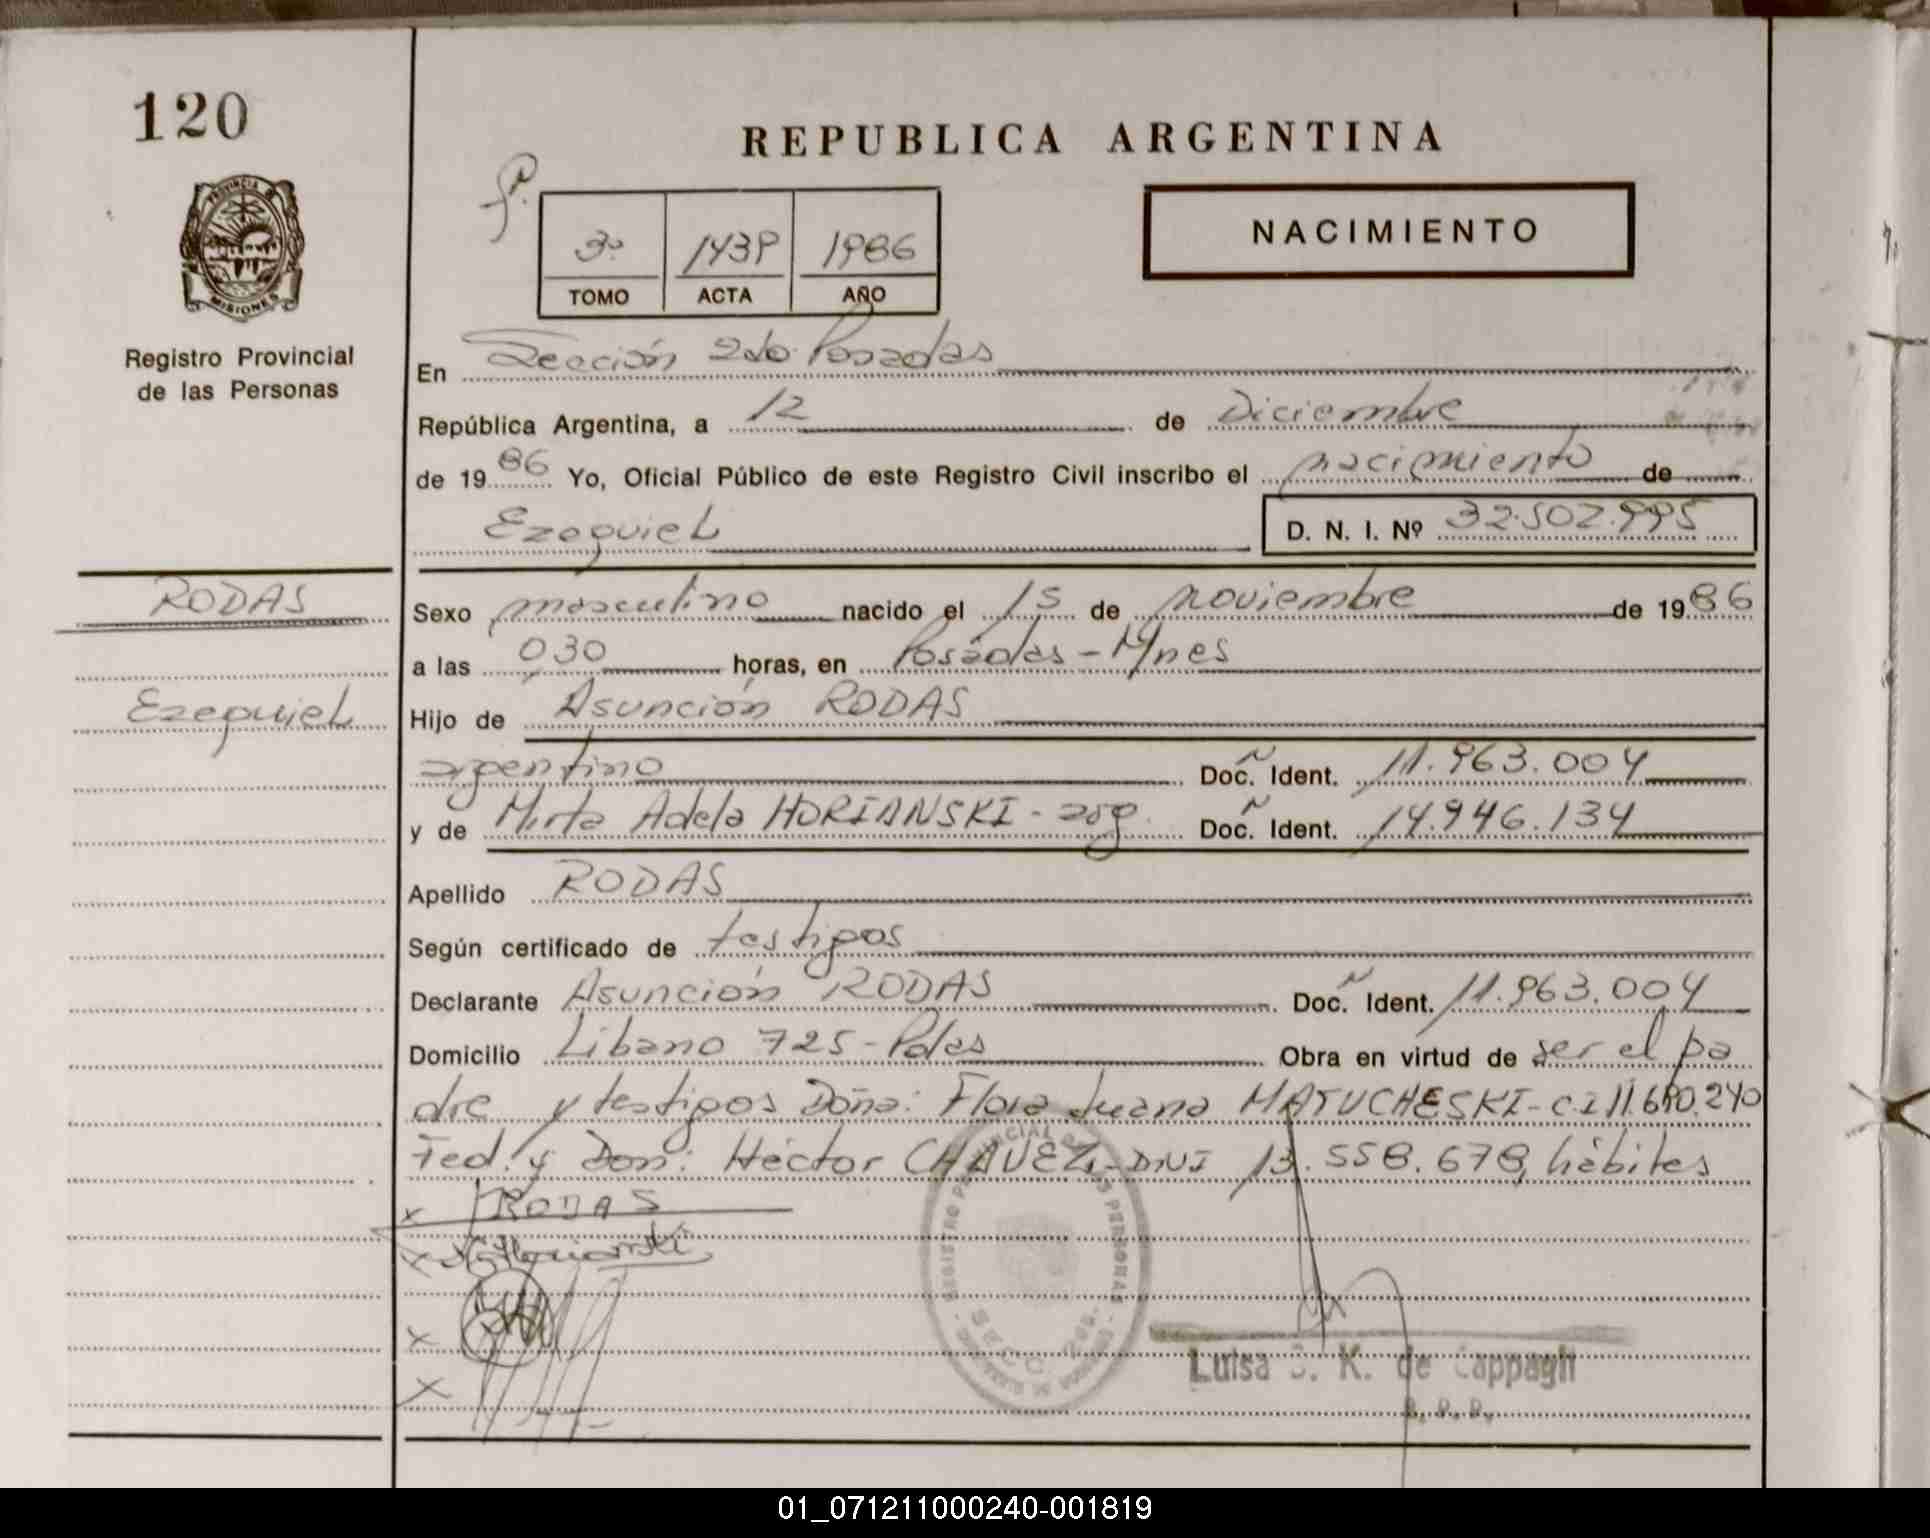 120
REPUBLICA ARGENTINA
PROVINCIA DE
MISIONES
3º 1439 1986
TOMO ACTA AÑO
NACIMIENTO
Registro Provincial
de las Personas
En Sección 2da. Posadas
República Argentina, a 12 de Diciembre
de 1986 Yo, Oficial Público de este Registro Civil inscribo el nacimiento de
Ezequiel D. N. I. Nº 32.502.995
RODAS
Ezequiel
Sexo masculino nacido el 15 de noviembre de 1986
a las 0,30 horas, en Posadas - Mnes
Hijo de Asunción RODAS
argentino Doc. Ident. 11.963.004
y de Mirta Adela HORIANSKI - arg. Doc. Ident. 14.946.134
Apellido RODAS
Según certificado de testigos
Declarante Asunción RODAS Doc. Ident. 11.963.004
Domicilio Libano 725 - Pdas Obra en virtud de ser el pa
dre y testigos Doña: Flora Juana MATUCHESKI - C.I 11.690.240
Fed. y Don: Héctor CHAVEZ - DNI 13.558.678, hábiles
x RODAS
x Horianski
x
x
REGISTRO PROVINCIAL DE LAS PERSONAS
SECC. 2da.
Luisa K. de Cappagli
01_071211000240-001819